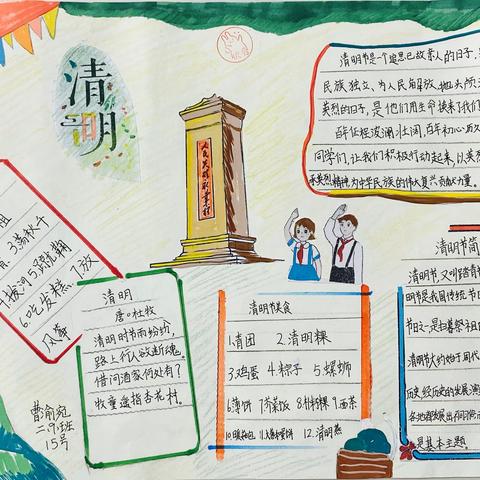 清明
人民英雄永垂不朽
清明节是一个追思已故亲人的日子,
民族独立、为人民解放、抛头颅
英烈的日子,是他们用生命换来了我们
百年征程波澜壮阔,百年初心历久
同学们,让我们积极行动起来,以英
承英烈精神,为中华民族的伟大复兴贡献力量。
3.荡秋千
拔河
6.吃发糕 7.放
风筝
清明
唐·杜牧
清明时节雨纷纷,
路上行人欲断魂。
借问酒家何处有?
牧童遥指杏花村。
曹俞宛
二9班
15号
清明节美食
1.青团 2.清明粿
3.鸡蛋 4.粽子 5.螺蛳
6.薄饼 7.芥菜饭 9.面茶
12.清明燕
清明节简
清明节,又叫踏青节
明节是我国传统节
节日之一,是扫墓祭祖
清明节大约始于周代
历史,经历史的发展演
是基本主题。